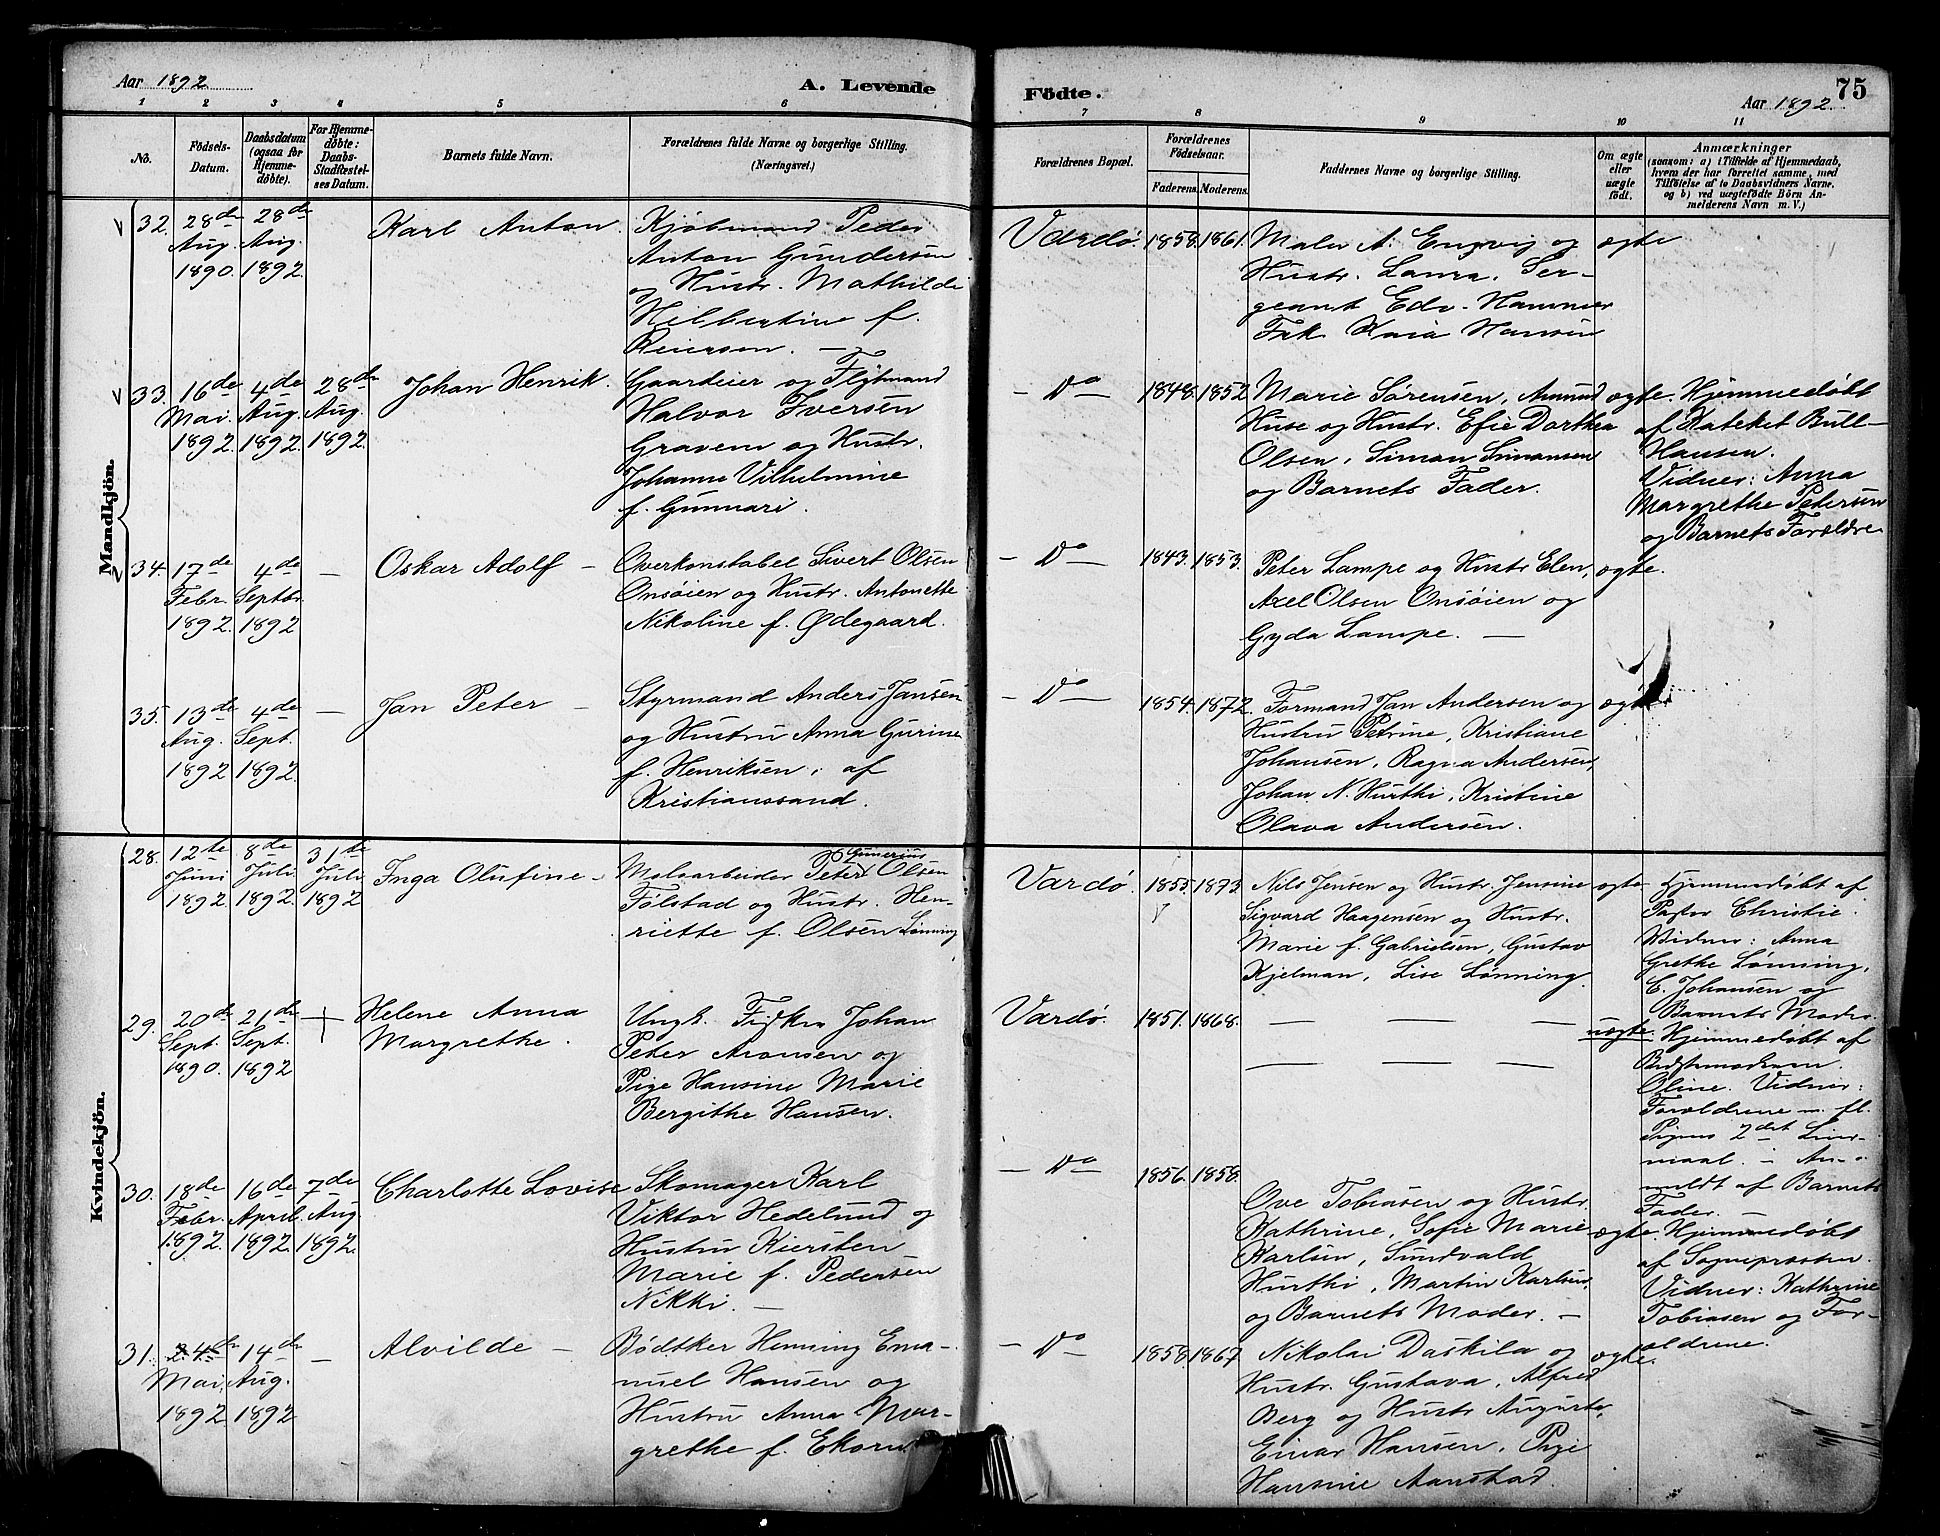 Aar 1892
A. Levende
Födte.
75
Aar 1892.
1 2 3 4 5 6 7 8 9 10 11
No.
Födsels-
Datum.
Daabsdatum
(ogsaa for
Hjemme-
döbte).
For Hjemme-
döbte:
Daabs-
Stadfæstel-
ses Datum.
Barnets fulde Navn.
Forældrenes fulde Navne og borgerlige Stilling.
(Næringsvei.)
Forældrenes Bopæl.
Forældrenes
Födselsaar.
Faderens. Moderens.
Faddernes Navne og borgerlige Stilling.
Om ægte
eller
uægte
födt.
Anmærkninger
(saasom: a) i Tilfælde af Hjemmedaab,
hvem der har forrettet samme, med
Tilföielse af to Daabsvidners Navne,
og b) ved uægtefödte Börn An-
melderens Navn m. V.)
Mandkjön.
32. 28de
Aug.
1890.
28de
Aug.
1892
Karl Anton.
Kjøbmand Peder
Anton Gundersen
og Hustr. Mathilde
Hilbertine f.
Reiersen. —
Vardø. 1858. 1861.
Maler A. Engvig og
Hustr. Laura, Ser-
geant Edv. Hammer
Frk Kaia Hansen
ægte
33. 16de
Mai.
1892.
4de
Aug.
1892.
28de
Aug.
1892
Johan Henrik.
Gaardeier og Fløtmand
Halvor Iversen
Gravem og Hustr.
Johanne Vilhelmine
f. Gunnari.
— Do — 1848. 1852
Marie Sørensen, Amund
Huse og Hustr. Efie Dorthea
Olsen, Simon Simonsen
og Barnets Fader.
ægte.
Hjemmedøbt
af Kateket Bull-
Hansen.
Vidner: Anna
Margrethe Petersen
og Barnets Forældre
34. 17de
Febr.
1892.
4de
Septbr.
1892
—
Oskar Adolf —
Overkonstabel Sivert Olsen
Onsøien og Hustr. Antonette
Nikoline f. Ødegaard.
— Do — 1843. 1853.
Peter Lampe og Hustr Elen,
Axel Olsen Onsøien og
Gyda Lampe. —
ægte.
35. 13de
Aug.
1892
4de
Sept.
1892.
—
Jan Peter —
Styrmand Anders Jansen
og Hustru Anna Gurine
f. Henriksen, af
Kristianssand.
— Do — 1854. 1872.
Formand Jan Andersen og
Hustru Petrine, Kristiane
Johansen, Ragna Andersen,
Johan N. Hurthi, Kristine
Olava Andersen.
ægte
Kvindekjön.
28. 12te
Juni
1892.
8de
Juli
1892.
31te
Juli
1892
Inga Olufine —
Gunerius
Malaarbeider Peter Olsen
Følstad og Hustr. Hen-
riette f. Olsen Lønning
Vardø. 1855. 1873.
Nils Jensen og Hustr. Jensine
Sigvard Haagensen og Hustr.
Marie f. Gabrielsen, Gustav
Kjelman, Lise Lønning.
ægte
Hjemmedøbt af
Pastor Christie.
Vidner: Anna
Grethe Lønning,
C. Johansen og
Barnets Moder.
29. 20de
Sept.
1890.
21de
Sept.
1892
Helene Anna
Margrethe.
Ungk. Fisker Johan
Peter Aronsen og
Pige Hansine Marie
Bergithe Hansen.
Vardø. 1851. 1868.
— — —
— — —
uægte.
Hjemmedøbt af
Oline. Vidner:
Forældrene m. fl.
Pigens 2det Leier-
maal. — An-
meldt af Barnets
Fader. —
30. 18de
Febr.
1892.
16de
April.
1892.
7de
Aug.
1892.
Charlotte Lovise
Skomager Karl
Viktor Hedelund og
Hustru Kiersten
Marie f. Pedersen
Nikki. —
— Do — 1856. 1858.
Ove Tobiasen og Hustr.
Kathrine, Sofie Marie
Karlsen, Sundvald
Hurthi, Martin Karlsen,
og Barnets Moder. —
ægte.
Hjemmedøbt
af Sognepræsten.
Vidner: Kathrine
Tobiasen og For-
ældrene.
31. 24de
Mai.
1892
14de
Aug.
1892
—
Alvilde —
Bødtker Henning Ema-
nuel Hansen og
Hustru Anna Mar-
grethe f. Ekorn
— Do — 1858. 1867
Nikolai Daskila og
Hustr. Gustava, Alfred
Berg og Hustr Augusta,
Einar Hansen, Pige
Hansine Aanstad.
ægte.